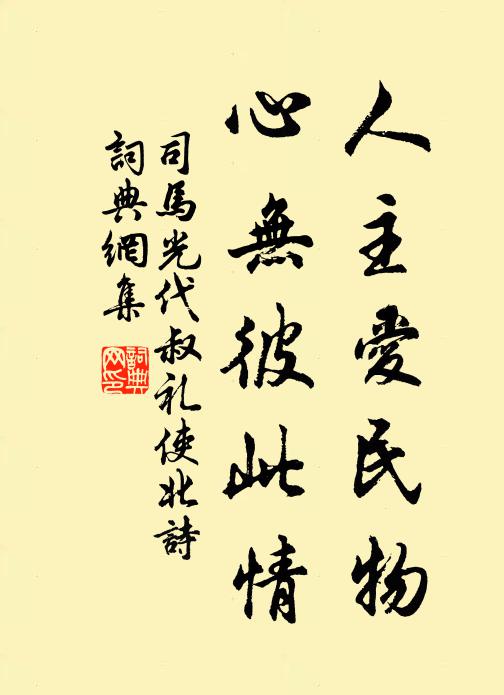 人主愛民物
心無彼此情
司馬光代叔礼使北詩
詞典網集
詞典
网印